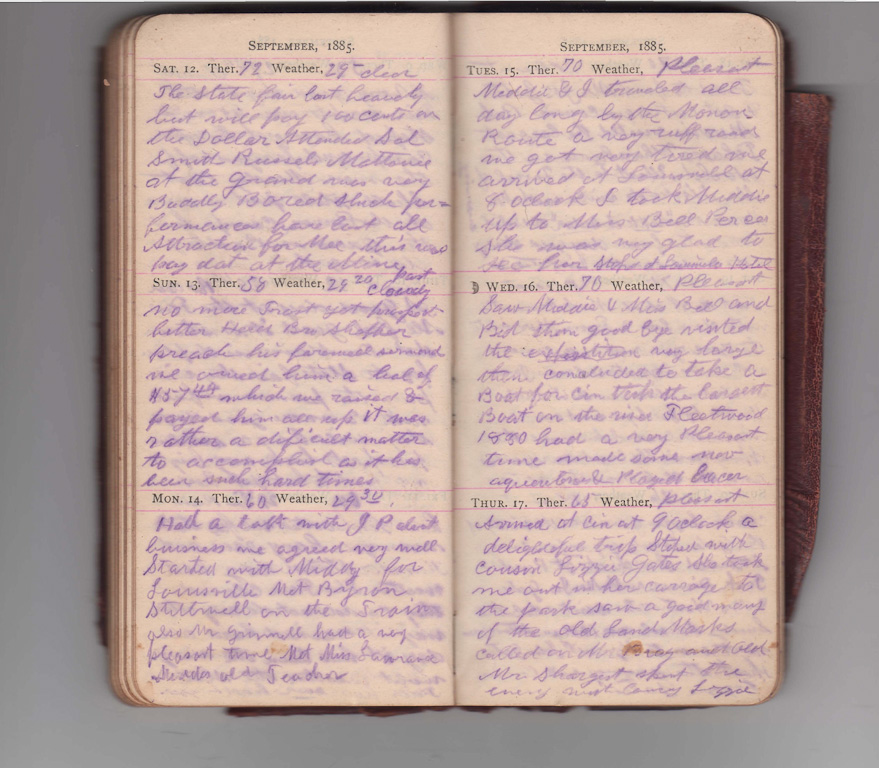 SEPTEMBER, 1885.
SAT. 12. Ther. 72 Weather, 29 clear
The State fair lost heavely
but will pay 100 cents on
the Dollar Attended Sol
Smith Russels Mattinee
at the Grand was very
Baddly Bored Such per=
formances have lost all
Attraction for Mee this was
pay dat at the Mine
SUN. 13. Ther. 58 Weather, 29 20 part cloudy
no more Frost yet
better Heard Bro
preach his farewell
we owed him a bal of
$57 40 which we raised &
payed him all up it was
rather a dificult matter
to accomplish as it has
been such hard times
MON. 14. Ther. 60 Weather, 29 30.
Had a talk with J P about
buisness we agreed very well
Started with Middy for
Louisville Met Byron
Stillwell on the Train
also Mr had a very
pleasant time Met Miss
old Teacher
SEPTEMBER, 1885.
TUES. 15. Ther. 70 Weather, Pleasant
Middie & I traveled all
day long by the Monon
Route a very ruff road
we got very tired we
arrived at at
8 oclock I took Middie
up to Miss Bell
She was very glad to
see her Stoped Hotel
WED. 16. Ther. 70 Weather, Pleasant
Saw Middie & Miss Bell and
Bid them good bye visited
the very large
then concluded to take a
Boat for Cin took the largest
Boat on the river Fleetwood
1880 had a very Pleasant
time made some new
Played
THUR. 17. Ther. 65 Weather, pleasant
Arived at Cin at 9 oclock a
delightful trip Stoped with
cousin Lizzie Gates She took
me out in her carrage to
the park saw a good many
of the old Land Marks
called on Mr and Old
Mr spent the
Lizzie